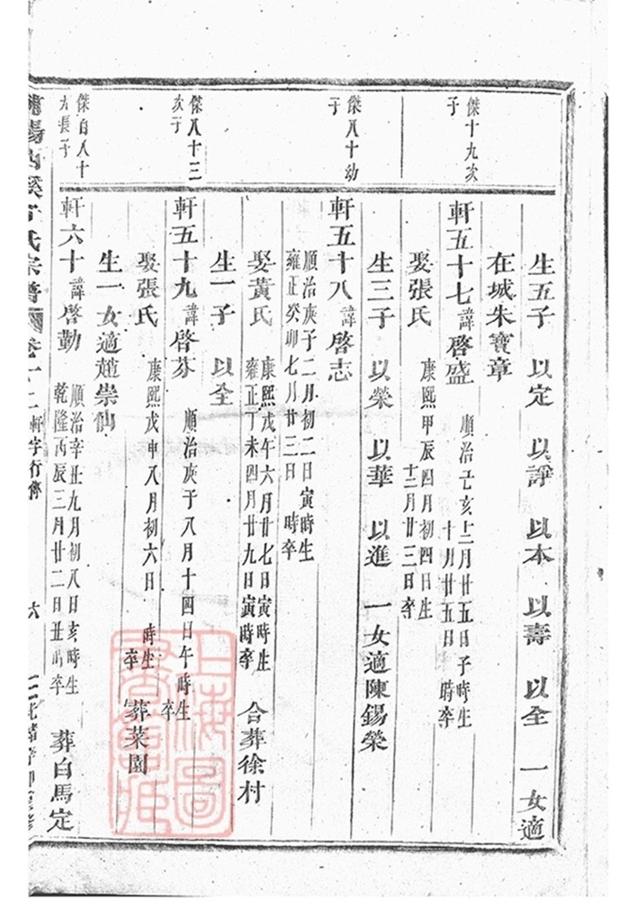 生五子 以定 以諍 以本 以壽 以全 一女適
在城朱寶章
傑十九次子
軒五十七 諱啓盛 順治己亥十二月廿五日子時生 十月廿五日 時卒
娶張氏 康熙甲辰四月初四日生 十二月廿三日卒
生三子 以榮 以華 以進 一女適陳錫榮
傑八十幼子
軒五十八 諱啓志
順治庚子二月初二日寅時生
雍正癸卯七月廿三日 時卒
娶黃氏 康熙戊午六月廿七日寅時生 雍正丁未四月廿九日寅時卒 合葬徐村
生一子 以全
傑八十三次子
軒五十九 諱啓芬 順治庚子八月十四日午時生 卒
娶張氏 康熙戊申八月初六日 時生 卒 葬菜園
生一女適趙崇仙
傑百八十九長子
軒六十 諱啓勤 順治辛丑九月初八日亥時生 乾隆丙辰三月廿二日丑時卒 葬白馬定
氏宗譜 卷十二 軒字行傳 六
上海圖書館藏